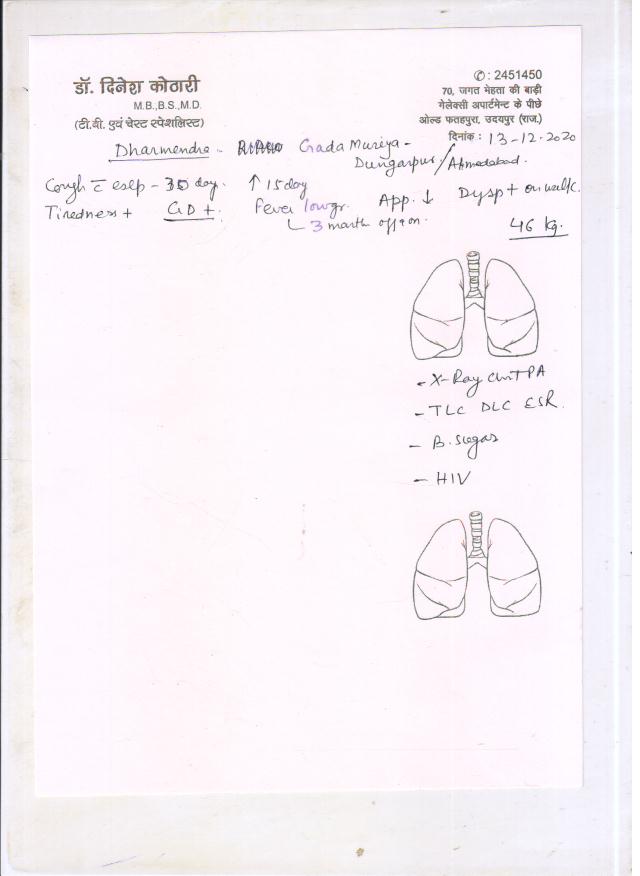 डॉ. दिनेश कोठारी
M.B.,B.S.,M.D.
(टी.बी. एवं चेस्ट स्पेशलिस्ट)
✆: 2451450
70, जगत मेहता की बाड़ी
गेलेक्सी अपार्टमेन्ट के पीछे
ओल्ड फतहपुरा, उदयपुर (राज.)
दिनांक : 13-12-2020
Dharmendra - Gada Muriya -
Dungarpur / Ahmedabad.
Cough c̄ - 35 day. ↑ 15 day App. ↓ Dysp + on walk.
Tiredness + GD +. Fever low gr.
3 month off & on.
46 kg.
- X-Ray Chest PA
- TLC DLC ESR.
- B. Sugar
- HIV